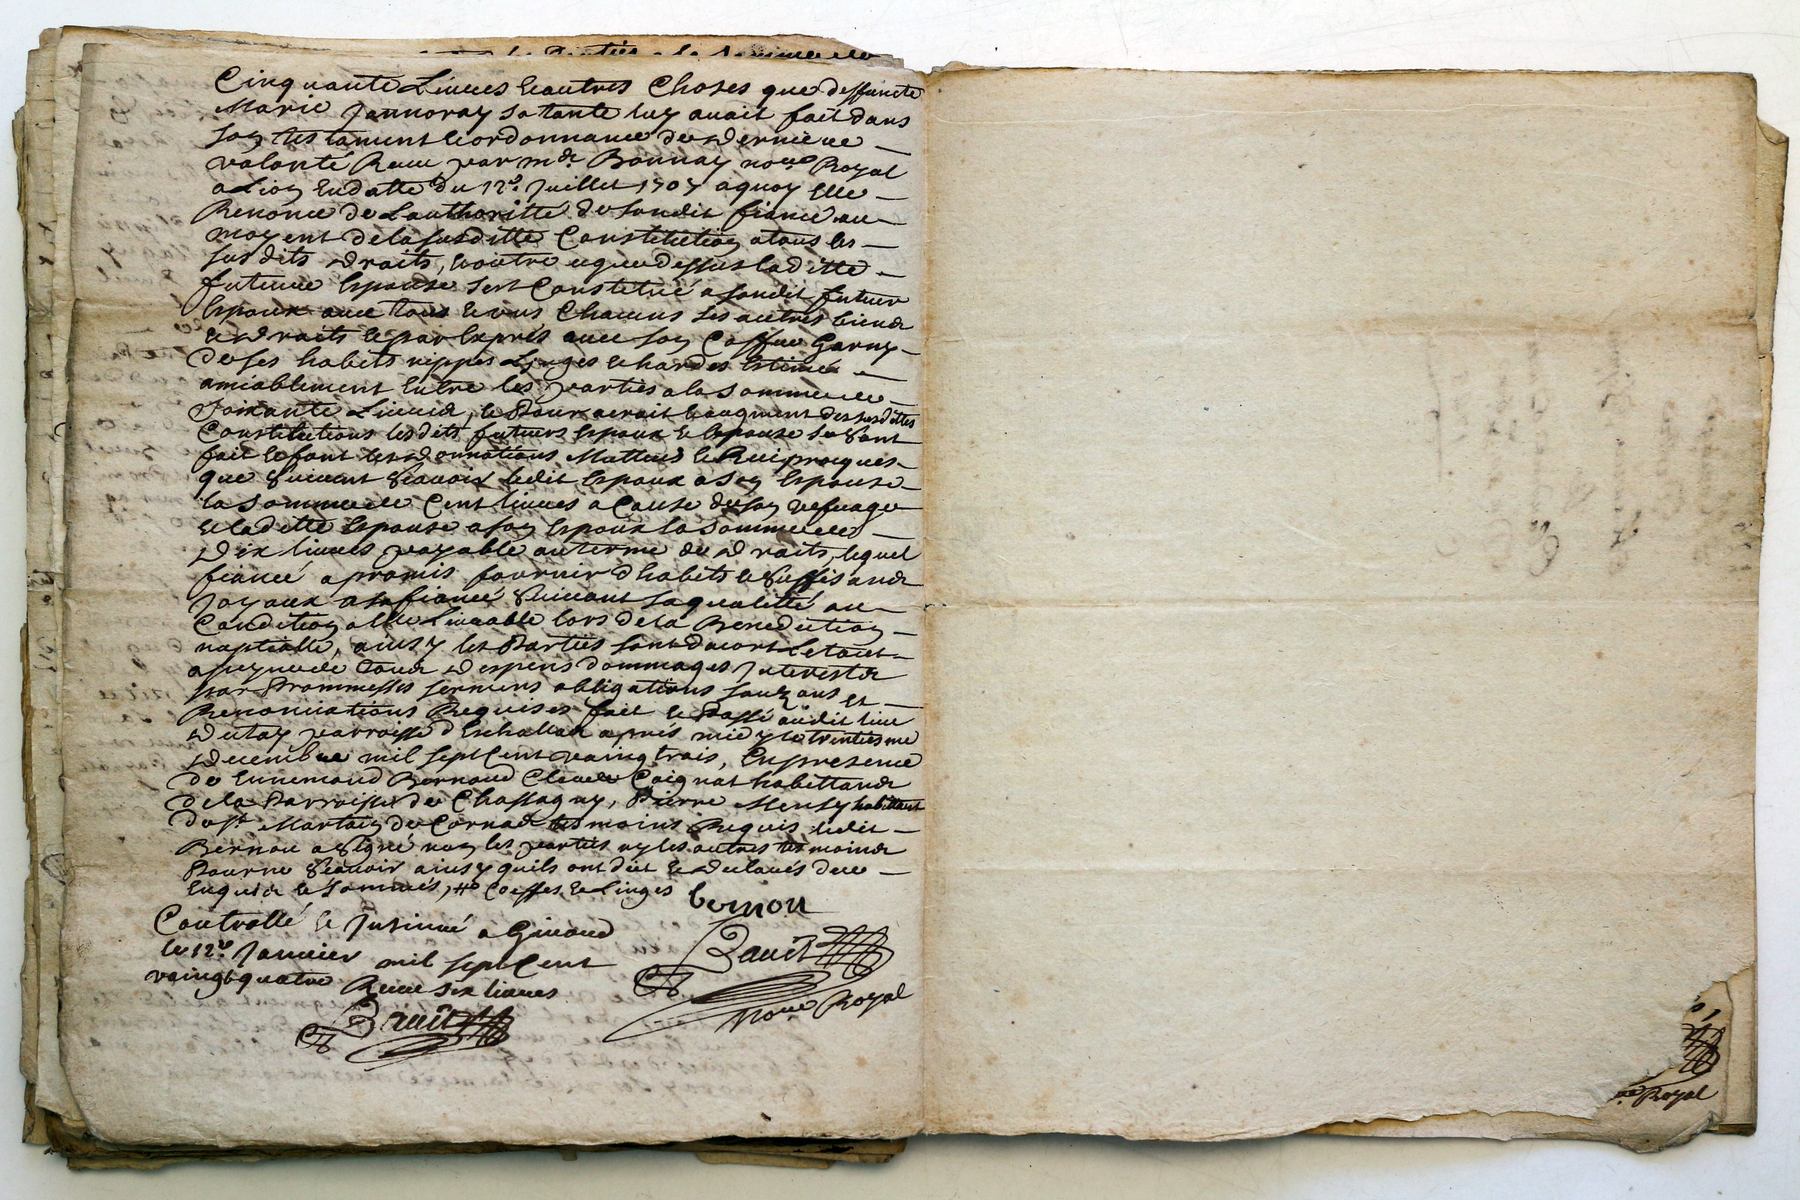 Cinquante Livres & autres Choses que deffuncte
Marie Jannoray sa tante luy avait fait dans
son testament & ordonnance de derniere
volonté Receu par Mdt Bonnay nore Royal
a Lion En datte du 12e Juillet 1707 a quoy Elle
Renonce de Lauthoritte de son dit fiancé au
moyent de la susditte Constitution a tous les
susdits droits, & outre ce que dessus la ditte
future Espouse sest Constitué a son dit futur
Espoux avec tous & uns Chacuns ses autres biens
& droits & par Exprés avec son Coffre Garny
de ses habits nippes Linges & hardes Estimés
amiablement Entre les parties a la somme de
soixante Livres, & Pour acroit & augment des susdittes
Constitutions lesdits futurs Espoux & Espouse se sont
fait & font les donnations Mattues & Reciproques
que suivent scavoir ledit Espoux a son Espouse
la somme de Cent livres a Cause de son vefvage
& la ditte Espouse a son Espoux la somme de
dix livres payable au terme de droits, lequel
fiancé a promis fournir d'habits & suffisans
Joyaux a sa fiancé suivant sa qualitté ou
Condition & lle Livrable lors de la Benediction
naptialle, ainsy les Parties sont dacort & tout
a peyne de tous despens dommages Interests
par Prommesses sermens obligations et
Renonciations Requises fait & Passé audit lieu
du tay parroisse d'Eschallas aprés midy le trentiesme
decembre mil sept Cent vaing trois, En presence
de Ennemond Bernoud Claude Coignat habittans
de la Parroisse de Chassagny, Pierre habittant
de st Martain de Cornas tesmoins Requis, ledit
Bernou a signé non les parties ny les autres tesmoins
Pour ne scavoir ainsy quils ont dit & declarés de ce
Enquis & sommés, # Coeffes & Linges
bernou
Controllé & Insinué a Givord
le 12e Janvier mil sept Cent
vaingt quatre Receu six livres
nore Royal
re Royal